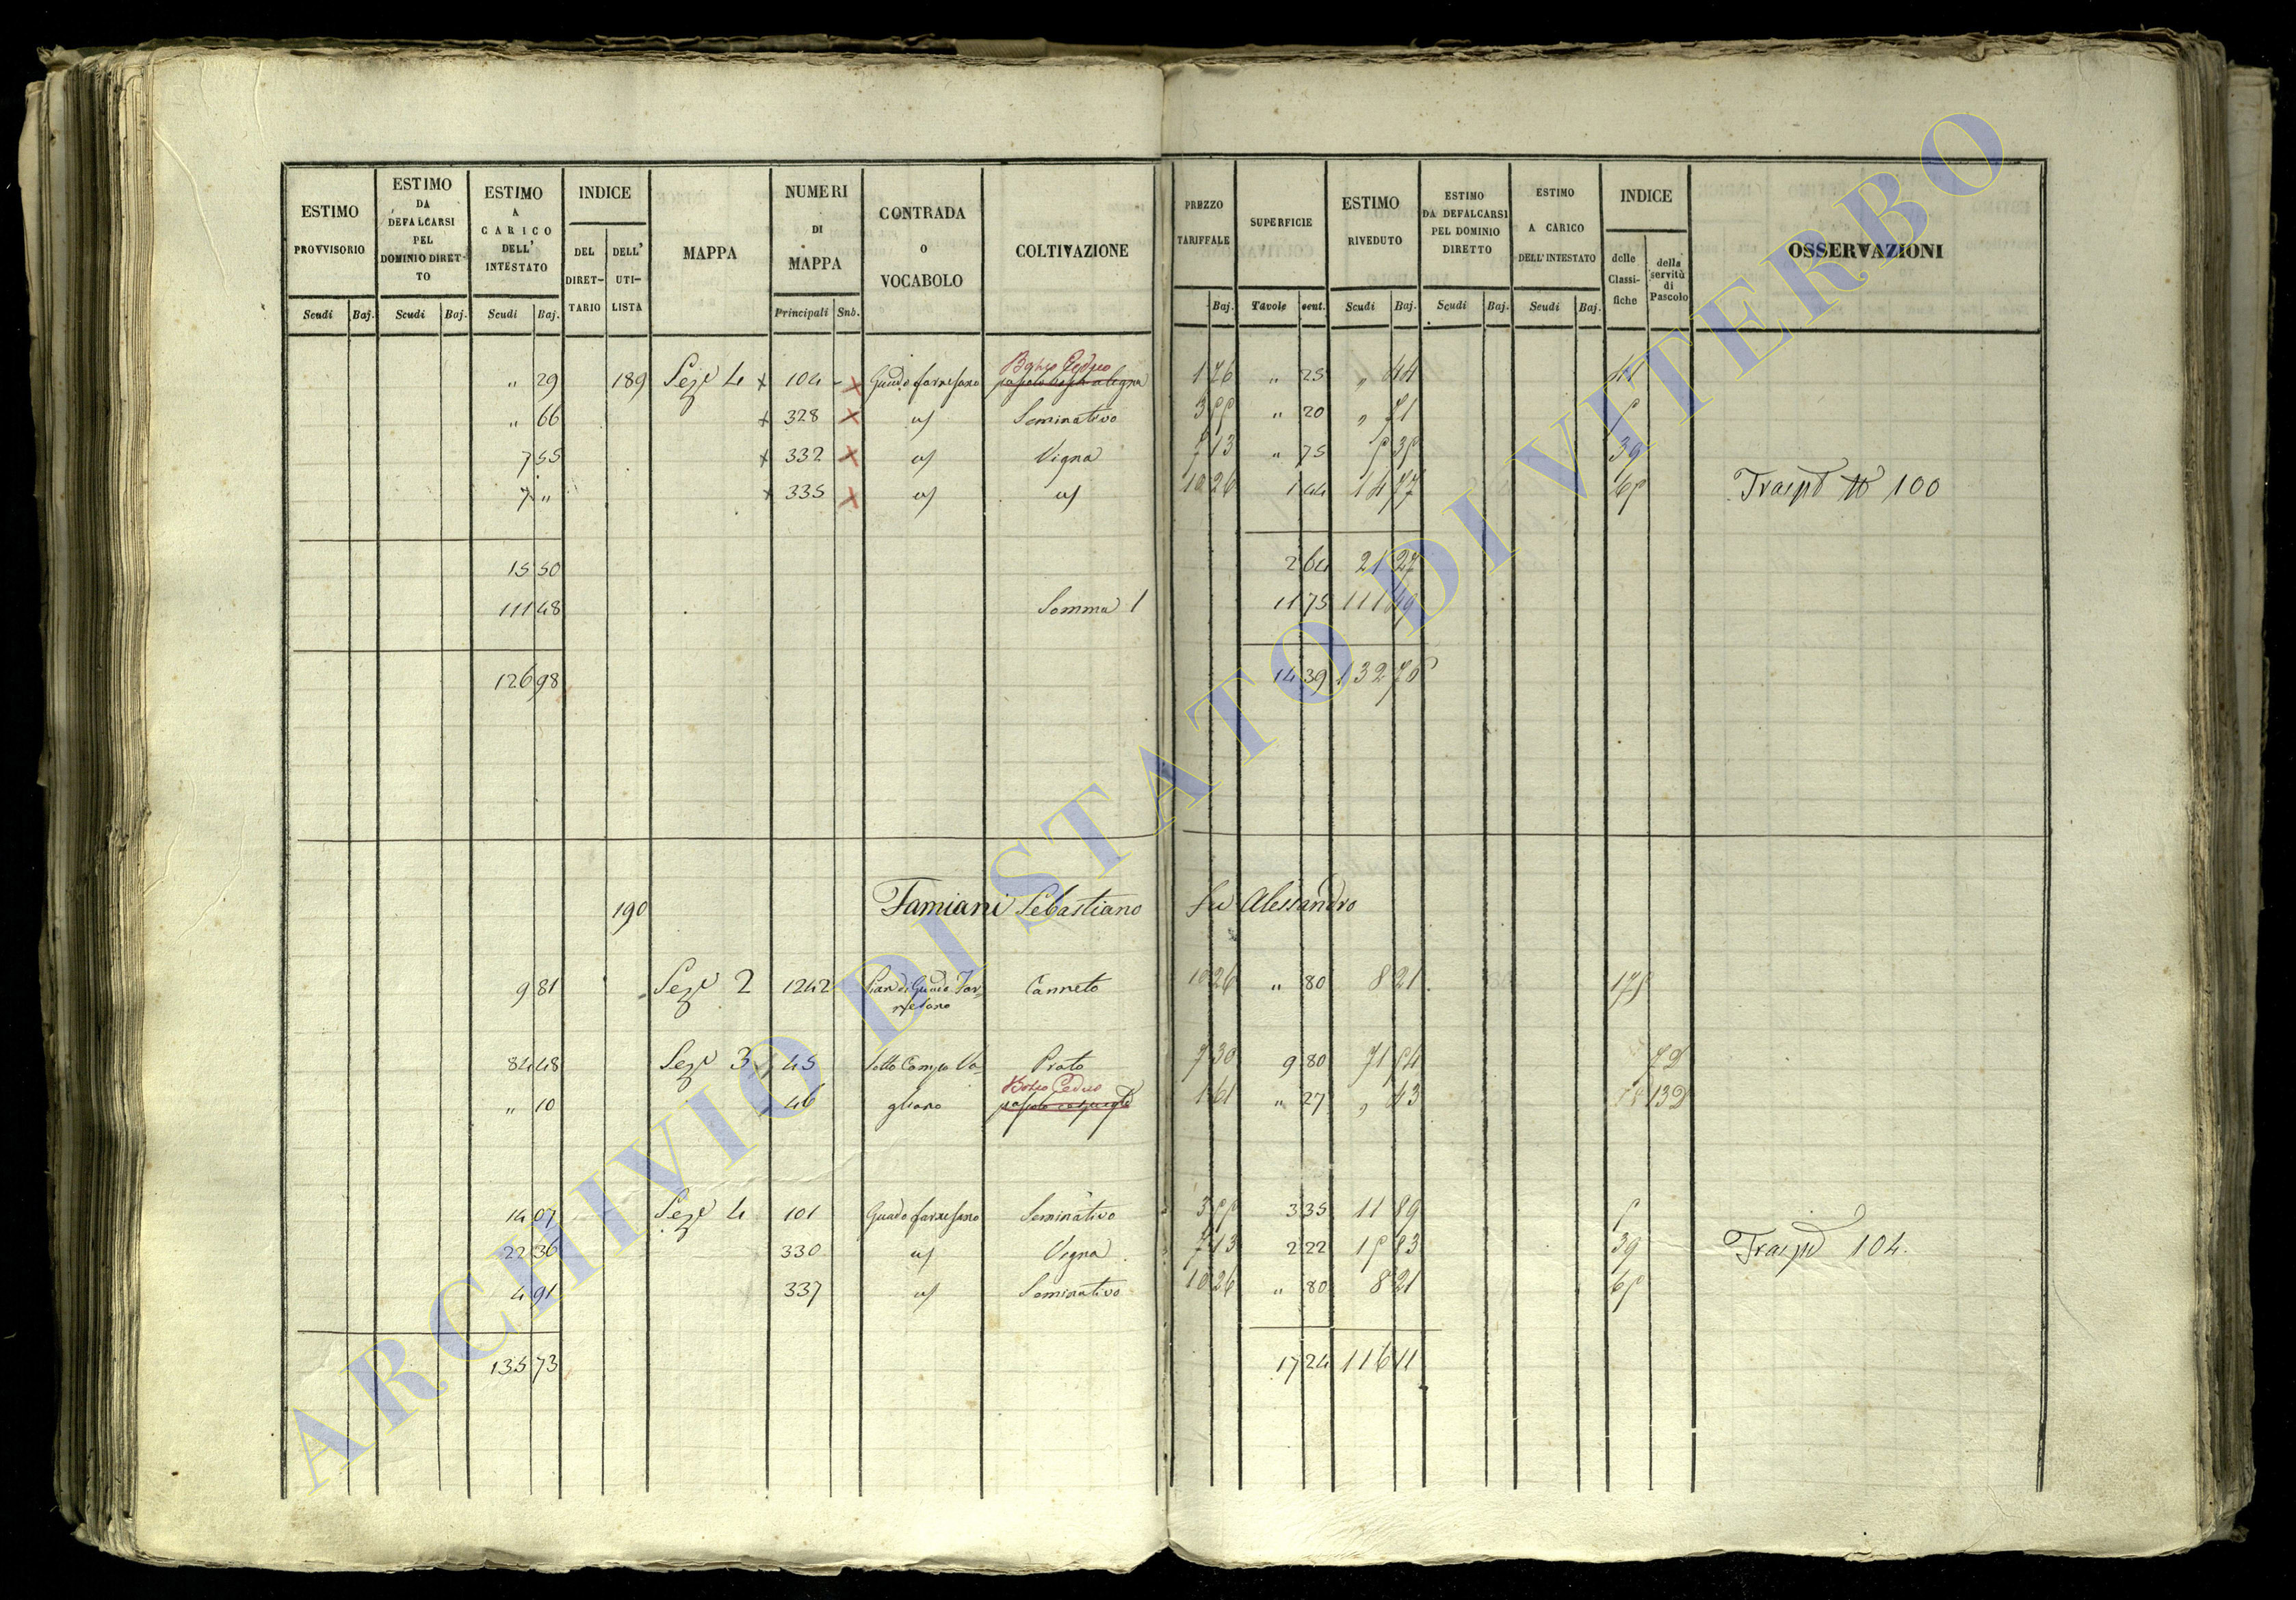 ESTIMO PROVVISORIO Scudi Baj.
ESTIMO DA DEFALCARSI PEL DOMINIO DIRETTO Scudi Baj.
ESTIMO A CARICO DELL' INTESTATO Scudi Baj.
INDICE DEL DIRETTARIO DELL' UTILISTA
MAPPA
NUMERI DI MAPPA Principali Sub.
CONTRADA O VOCABOLO
COLTIVAZIONE
PREZZO TARIFFALE Baj.
SUPERFICIE Tavole cent.
ESTIMO RIVEDUTO Scudi Baj.
ESTIMO DA DEFALCARSI PEL DOMINIO DIRETTO Scudi Baj.
ESTIMO A CARICO DELL'INTESTATO Scudi Baj.
INDICE delle Classifiche della servitù di Pascolo
OSSERVAZIONI
Bosco Ceduo
" 29 189 Sezе 4 x 104 x Guado farnesano 1 76 " 25 " 44 41
" 66 x 328 x Seminativo " 20 " 71
7 55 x 332 x Vigna 7 13 " 75 39
7 " x 335 x 10 26 1 44 14 77 Trasp 100
15 50 2 64 21 27
111 48 Somma 1 11 75 111 49
126 98 14 39 132 76
190 Famiani Sebastiano fu Alessandro
9 81 Sezе 2 1242 Pian di Guado Far=
nesano Canneto 10 26 " 80 8 21
84 48 Sezе 3 45 Sotto Campo Va= Prato 7 30 9 80 71 54 72
Bosco Ceduo
" 10 46 gliano 1 61 " 27 " 43 132
14 07 Sezе 4 101 Guado farnesano Seminativo 3 35 11 89
22 36 330 Vigna 7 13 2 22 15 83 39 Trasp 104.
4 91 337 Seminativo 10 26 " 80 8 21
135 73 17 24 116 11
ARCHIVIO DI STATO DI VITERBO